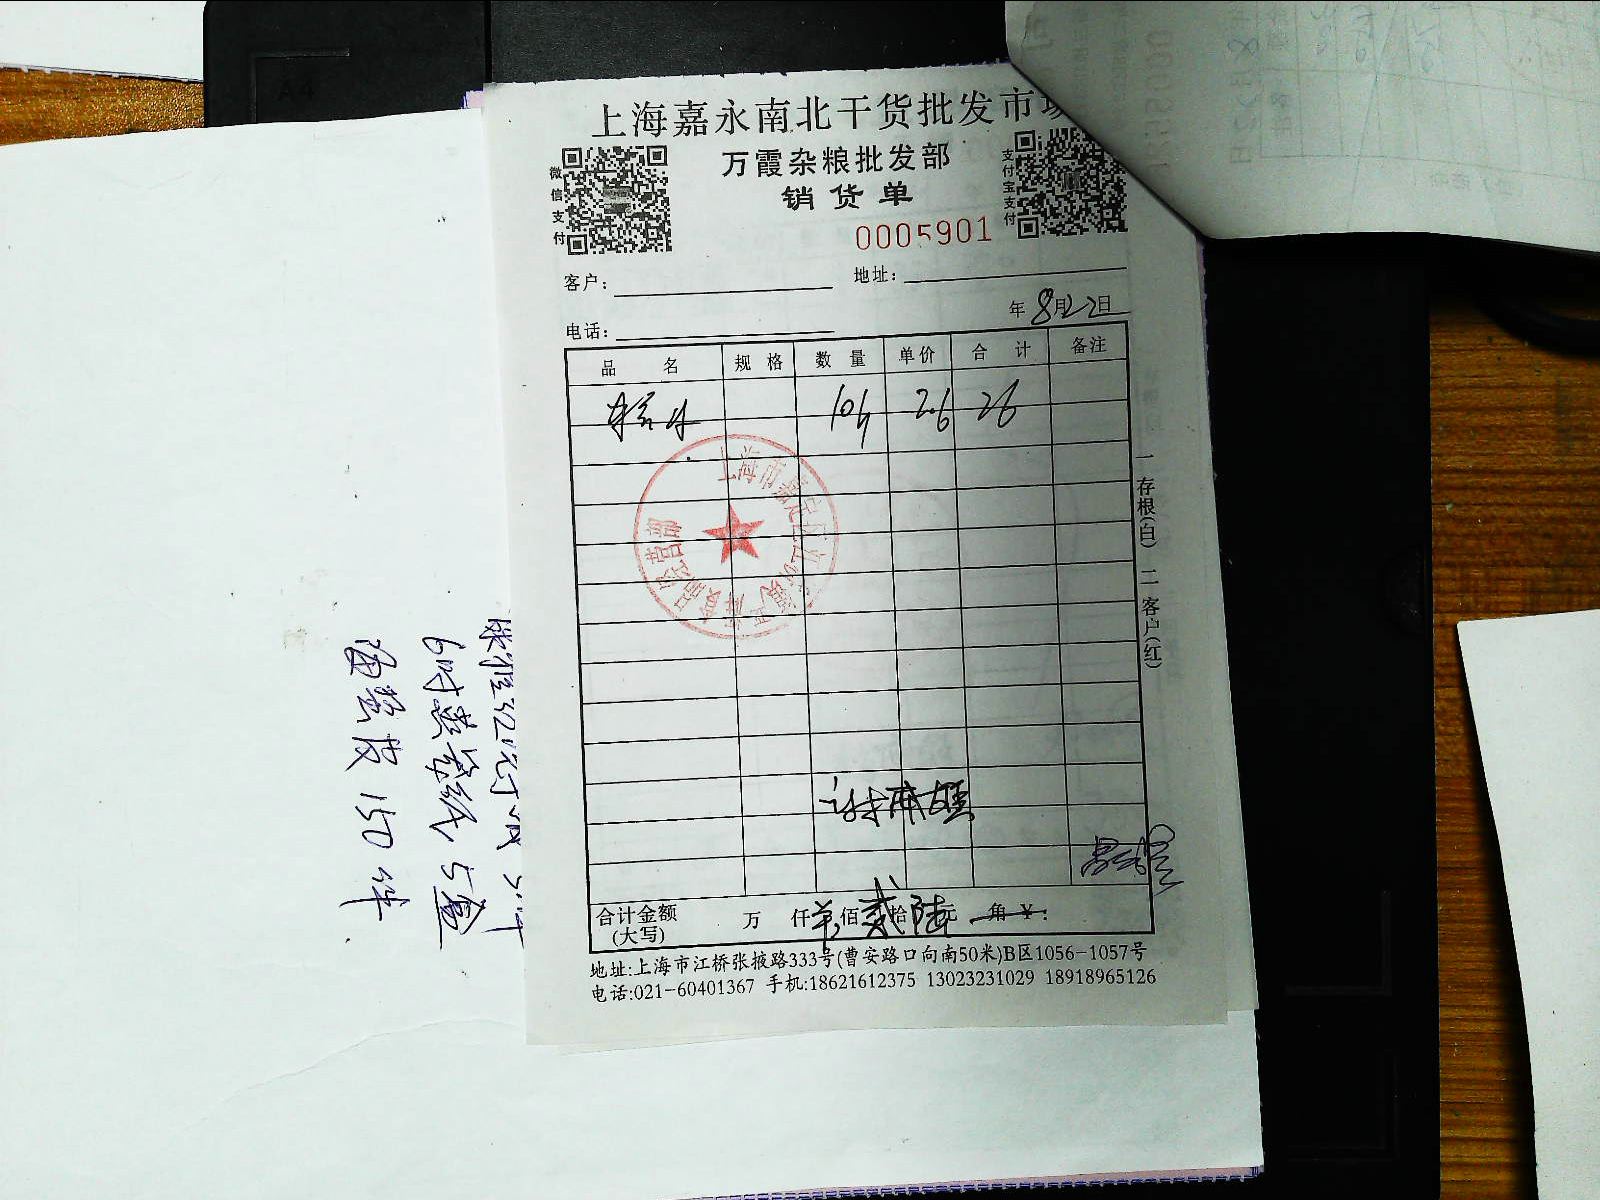 上海嘉永南北干货批发市场
万霞杂粮批发部
销货单
微信支付
支付宝支付
0005901
客户:
地址:
年8月22日
电话:
品 名 规 格 数 量 单价 合 计 备注
10斤 2.6 26
上海市嘉定区江桥镇
食品经营部
一存根(白) 二客户(红)
合计金额(大写) 万 仟 佰 贰拾陆元 角 ¥:
地址:上海市江桥张掖路333号(曹安路口向南50米)B区1056-1057号
电话:021-60401367 手机:18621612375 13023231029 18918965126
5盒
150
A4